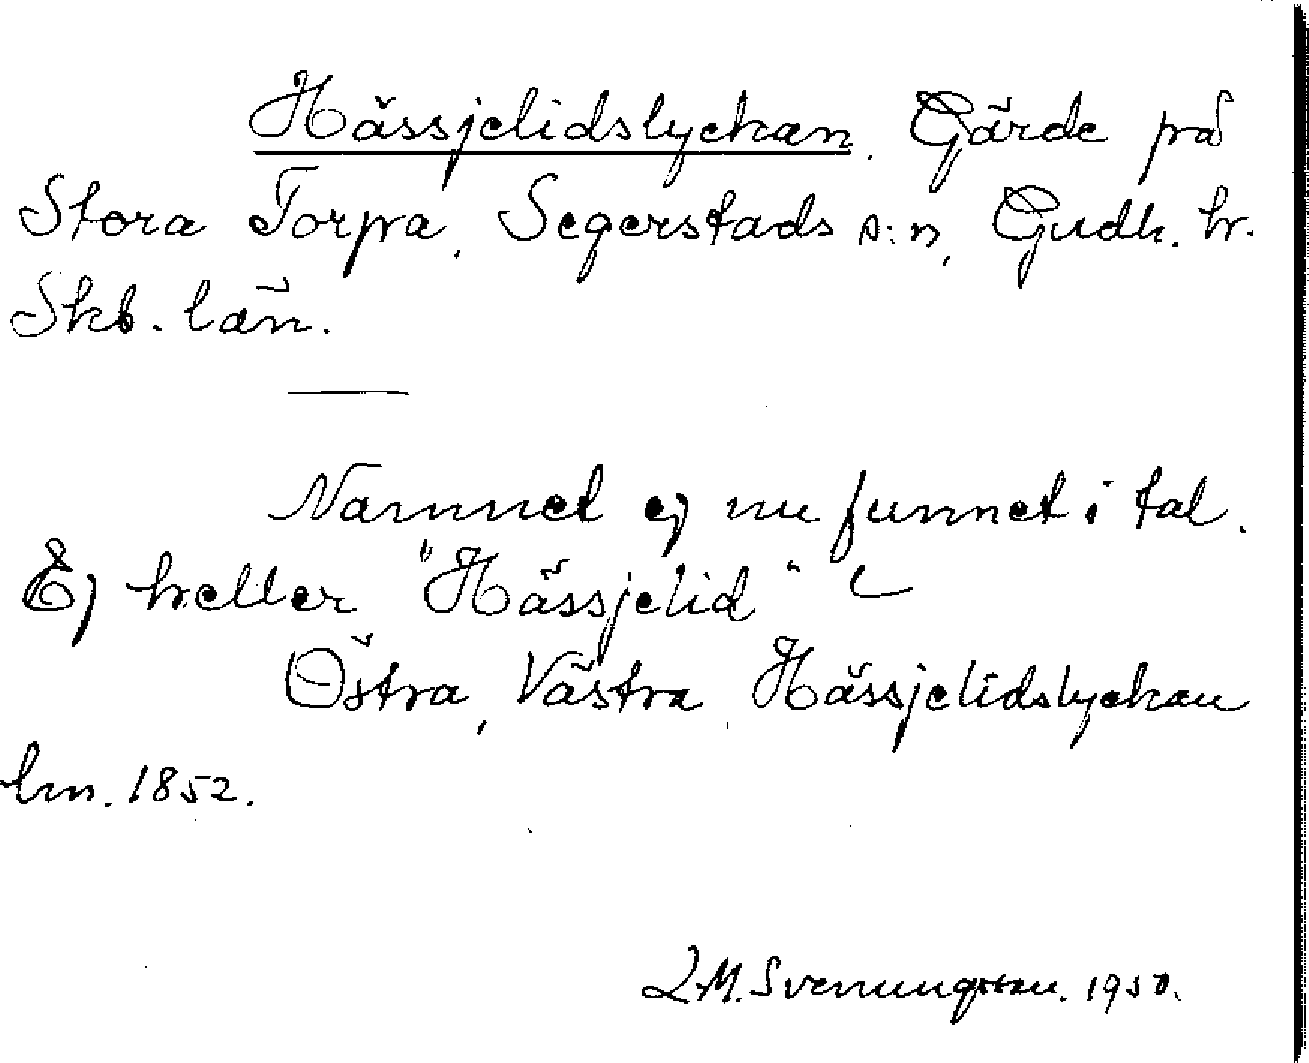 Hässjelidslyckan. Gärde på
Stora Torpa, Segerstads s:n, Gudh. hr.
Skb. län.
Namnet ej nu funnet i tal.
Ej heller "Hässjelid"
Östra, Västra Hässjelidslyckan
lm. 1852.
L.M. Svenungsson. 1950.